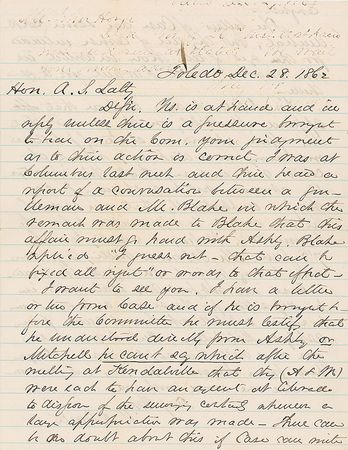 Toledo Dec. 28. 1862
Hon. A. S. Latty
D Sir. Yrs. is at hand and in
reply unless there is a pressure brought
to bear on the Com. your judgment
as to their action is correct. I was at
Columbus last week and there heard a
report of a conversation between a gen-
tleman and Mr. Blake in which the
remark was made to Blake that this
affair must go hard with Ashley. Blake
replied "I guess not — that can be
fixed all right" or words to that effect —
I want to see you. I have a letter
or two from Case and if he is brought be-
fore the Committee he must testify that
he understood directly from Ashley or
Mitchell he can't say which after the
meeting at Kendalville that they (A & M)
were each to have an agent at Colorado
to dispose of the surveying contracts whenever a
large appropriation was made — there can
be no doubt about this if Case can